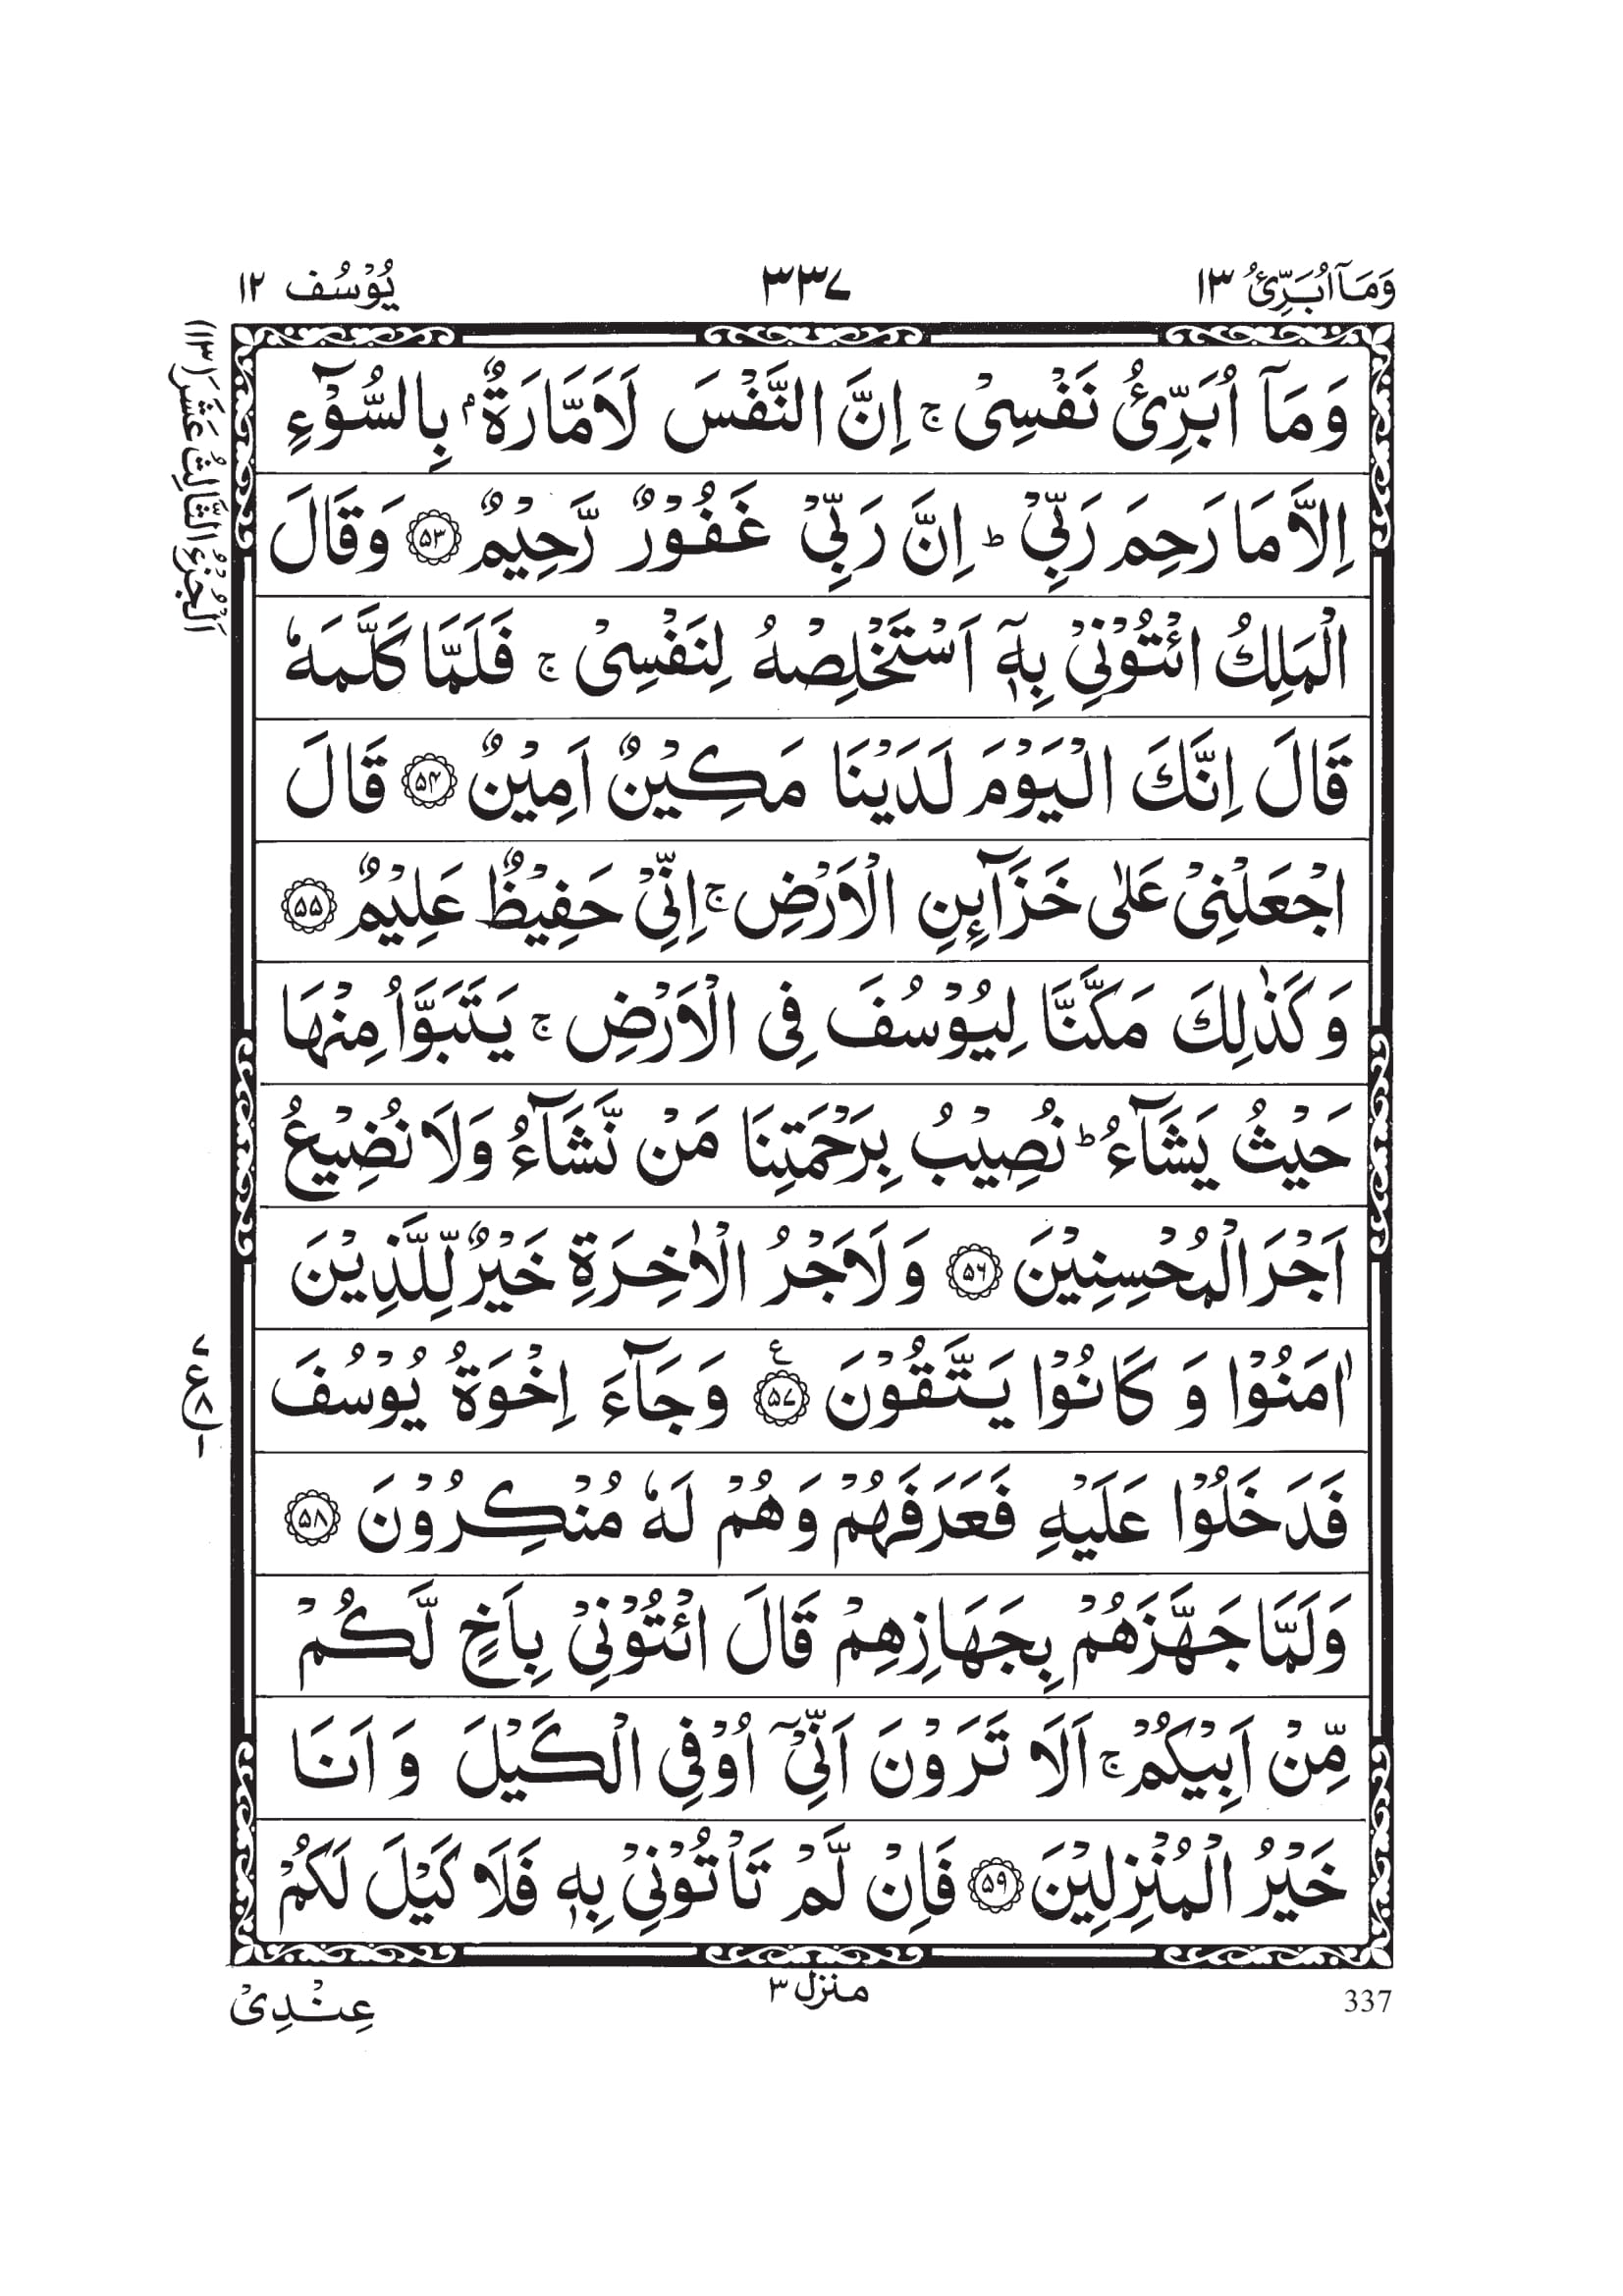 وَمَآ اُبَرِّئُ ١٣ ٣٣٧ يُوْسُف ١٢
اَلْجُزْءُ الثَّالِثُ عَشَرَ (١٣)
وَمَآ اُبَرِّئُ نَفْسِیْ ۚ اِنَّ النَّفْسَ لَاَمَّارَةٌۢ بِالسُّوْٓءِ
اِلَّا مَا رَحِمَ رَبِّیْ ؕ اِنَّ رَبِّیْ غَفُوْرٌ رَّحِیْمٌ ﴿۵۳﴾ وَقَالَ
الْمَلِكُ ائْتُوْنِیْ بِهٖۤ اَسْتَخْلِصْهُ لِنَفْسِیْ ۚ فَلَمَّا كَلَّمَهٗ
قَالَ اِنَّكَ الْیَوْمَ لَدَیْنَا مَكِیْنٌ اَمِیْنٌ ﴿۵۴﴾ قَالَ
اجْعَلْنِیْ عَلٰی خَزَآىِٕنِ الْاَرْضِ ۚ اِنِّیْ حَفِیْظٌ عَلِیْمٌ ﴿۵۵﴾
وَكَذٰلِكَ مَكَّنَّا لِیُوْسُفَ فِی الْاَرْضِ ۚ یَتَبَوَّاُ مِنْهَا
حَیْثُ یَشَآءُ ؕ نُصِیْبُ بِرَحْمَتِنَا مَنْ نَّشَآءُ وَلَا نُضِیْعُ
اَجْرَ الْمُحْسِنِیْنَ ﴿۵۶﴾ وَلَاَجْرُ الْاٰخِرَةِ خَیْرٌ لِّلَّذِیْنَ
اٰمَنُوْا وَ كَانُوْا یَتَّقُوْنَ ﴿۵۷﴾ ع وَجَآءَ اِخْوَةُ یُوْسُفَ
٧ ع ٨ ١
فَدَخَلُوْا عَلَیْهِ فَعَرَفَهُمْ وَهُمْ لَهٗ مُنْكِرُوْنَ ﴿۵۸﴾
وَلَمَّا جَهَّزَهُمْ بِجَهَازِهِمْ قَالَ ائْتُوْنِیْ بِاَخٍ لَّكُمْ
مِّنْ اَبِیْكُمْ ۚ اَلَا تَرَوْنَ اَنِّیْۤ اُوْفِی الْكَیْلَ وَ اَنَا
خَیْرُ الْمُنْزِلِیْنَ ﴿۵۹﴾ فَاِنْ لَّمْ تَاْتُوْنِیْ بِهٖ فَلَا كَیْلَ لَكُمْ
337 منزل ٣ عِنْدِیْ